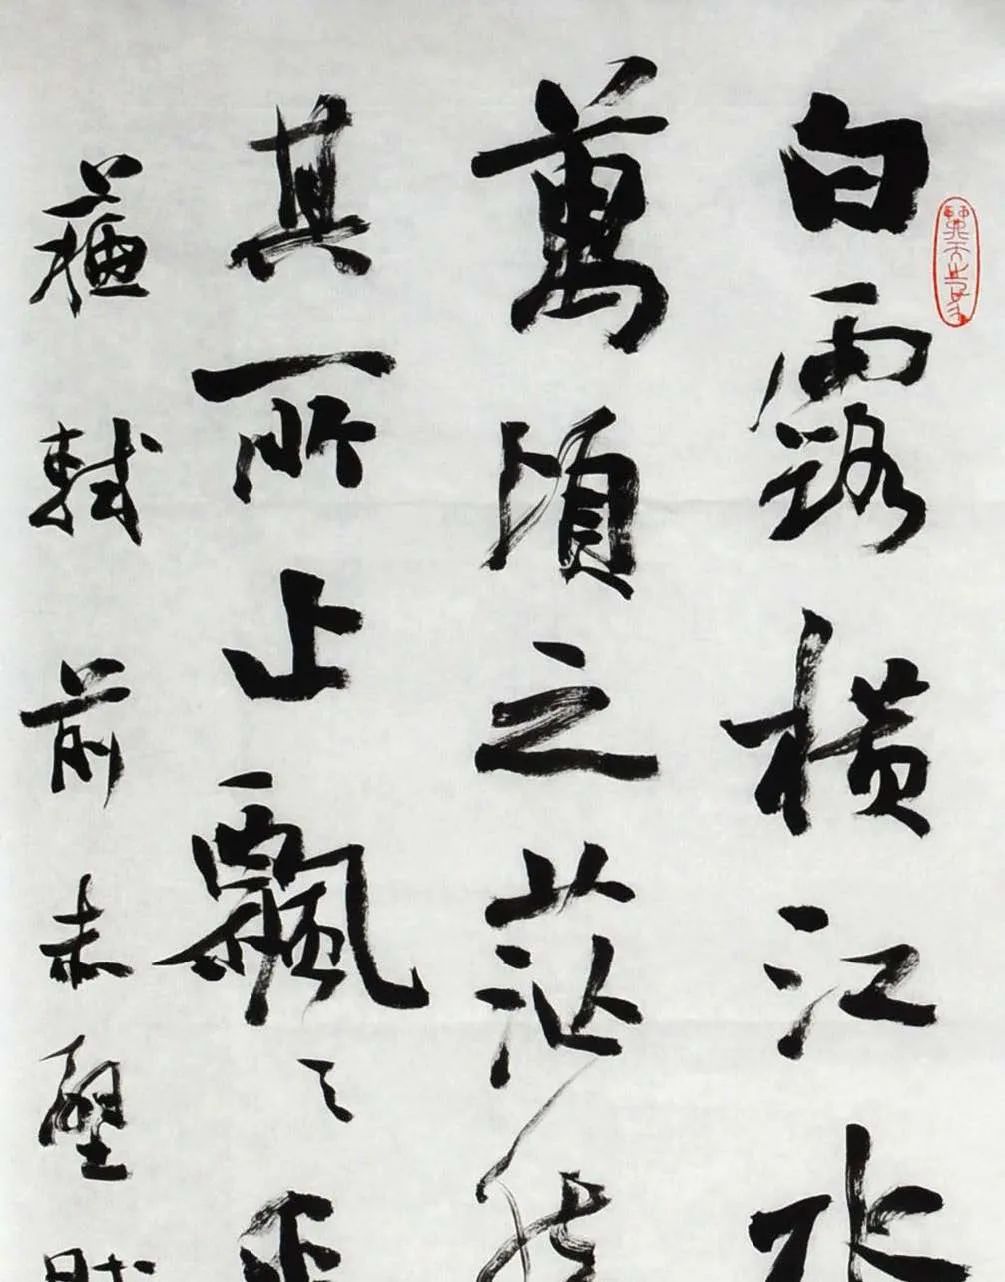 白露橫江水
萬頃之茫然
其所止飄〻乎
蘇軾前赤壁賦